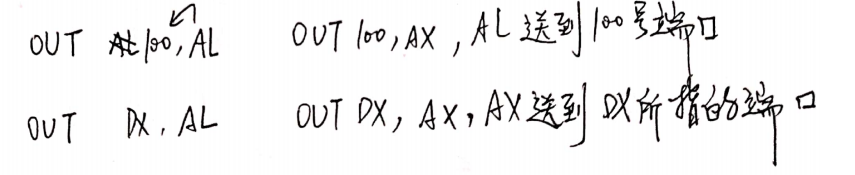 OUT 100, AL OUT 100, AX, AL送到100号端口
OUT DX, AL OUT DX, AX, AX送到DX所指的端口